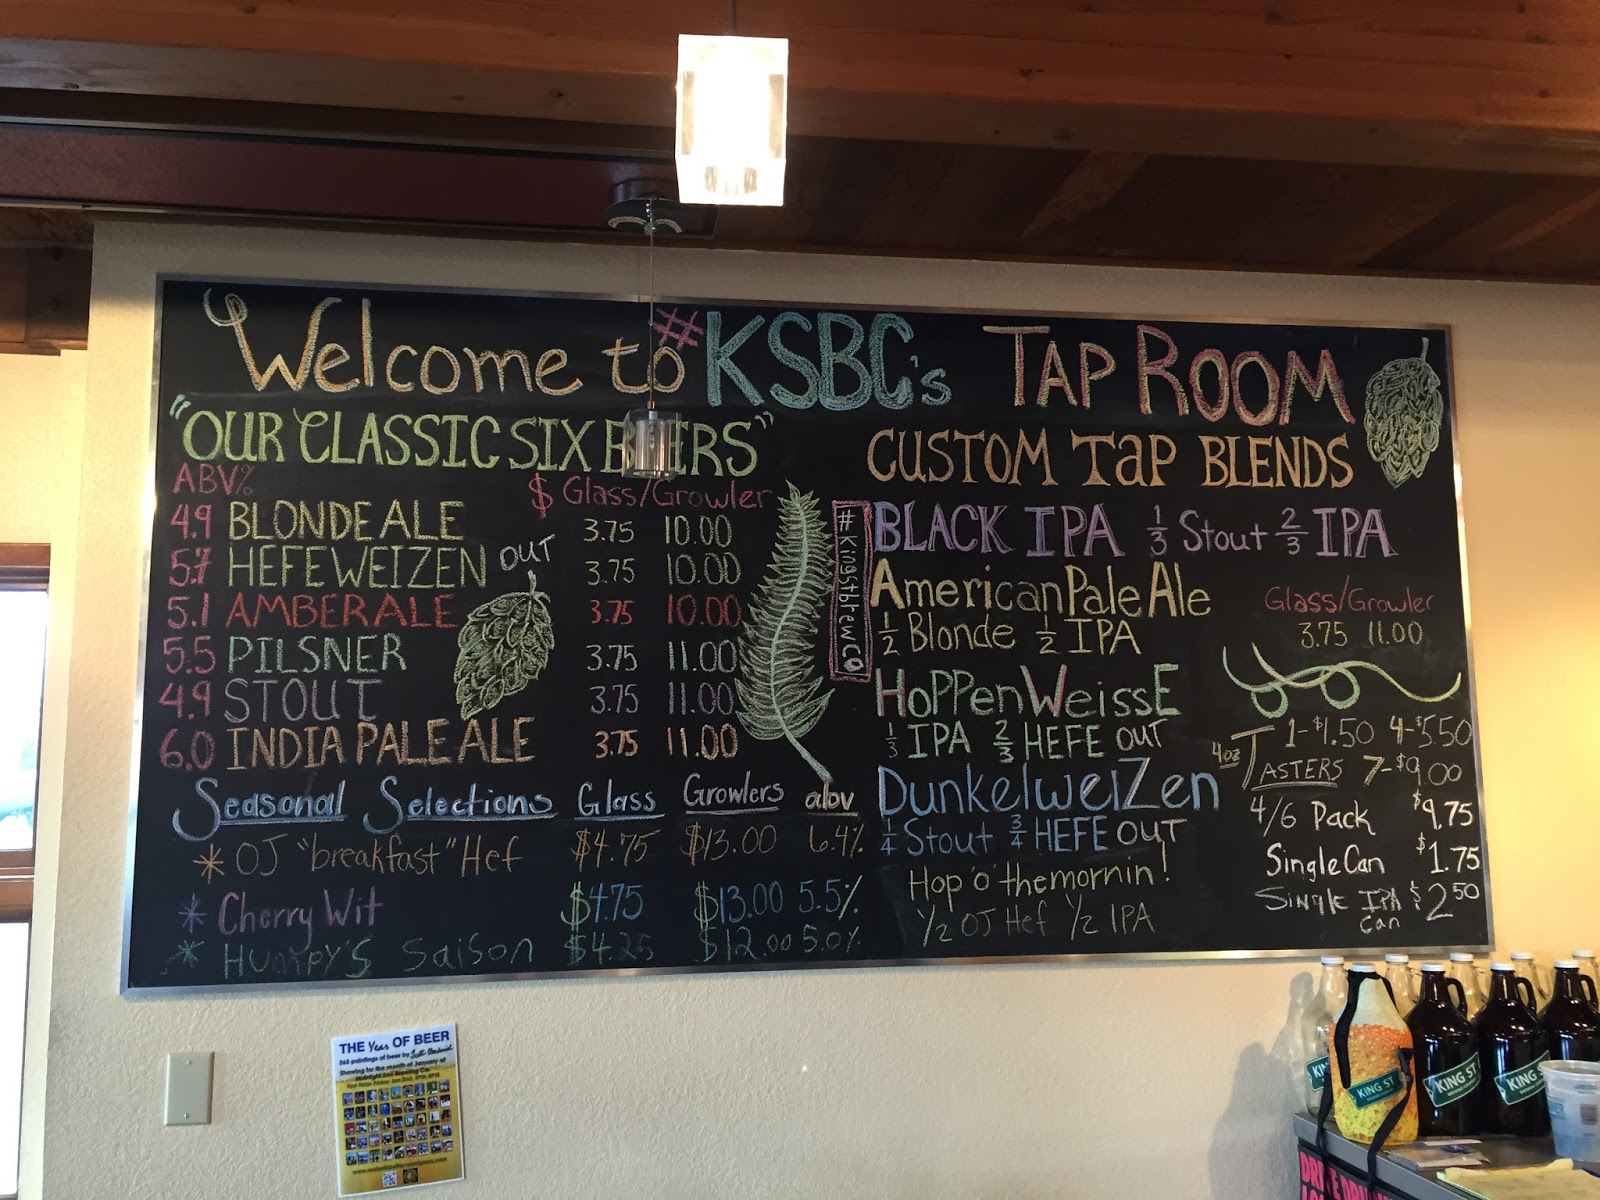 Welcome to #KSBC's TAP ROOM
"OUR CLASSIC SIX BEERS"
ABV% $ Glass/Growler
4.9 BLONDE ALE 3.75 10.00
5.7 HEFEWEIZEN OUT 3.75 10.00
5.1 AMBER ALE 3.75 10.00
5.5 PILSNER 3.75 11.00
4.9 STOUT 3.75 11.00
6.0 INDIA PALE ALE 3.75 11.00
Seasonal Selections Glass Growlers abv
* OJ "breakfast" Hef $4.75 $13.00 6.4%
* Cherry Wit $4.75 $13.00 5.5%
* HUMPY'S SAISON $4.25 $12.00 5.0%
#Kingstbrewco
CUSTOM TaP BLENDS
BLACK IPA 1/3 Stout 2/3 IPA
American Pale Ale
1/2 Blonde 1/2 IPA
Glass/Growler
3.75 11.00
HoPPen WeissE
1/3 IPA 2/3 HEFE OUT
DunkelweiZen
1/4 Stout 3/4 HEFE OUT
Hop 'o' the mornin!
1/2 OJ Hef 1/2 IPA
4oz TASTERS 1-$1.50 4-$5.50
7-$9.00
4/6 Pack $9.75
Single Can $1.75
Single IPA Can $2.50
THE Year OF BEER
365 paintings of beer by
Showing for the month of January at
KING ST
KING ST
KING ST
KING